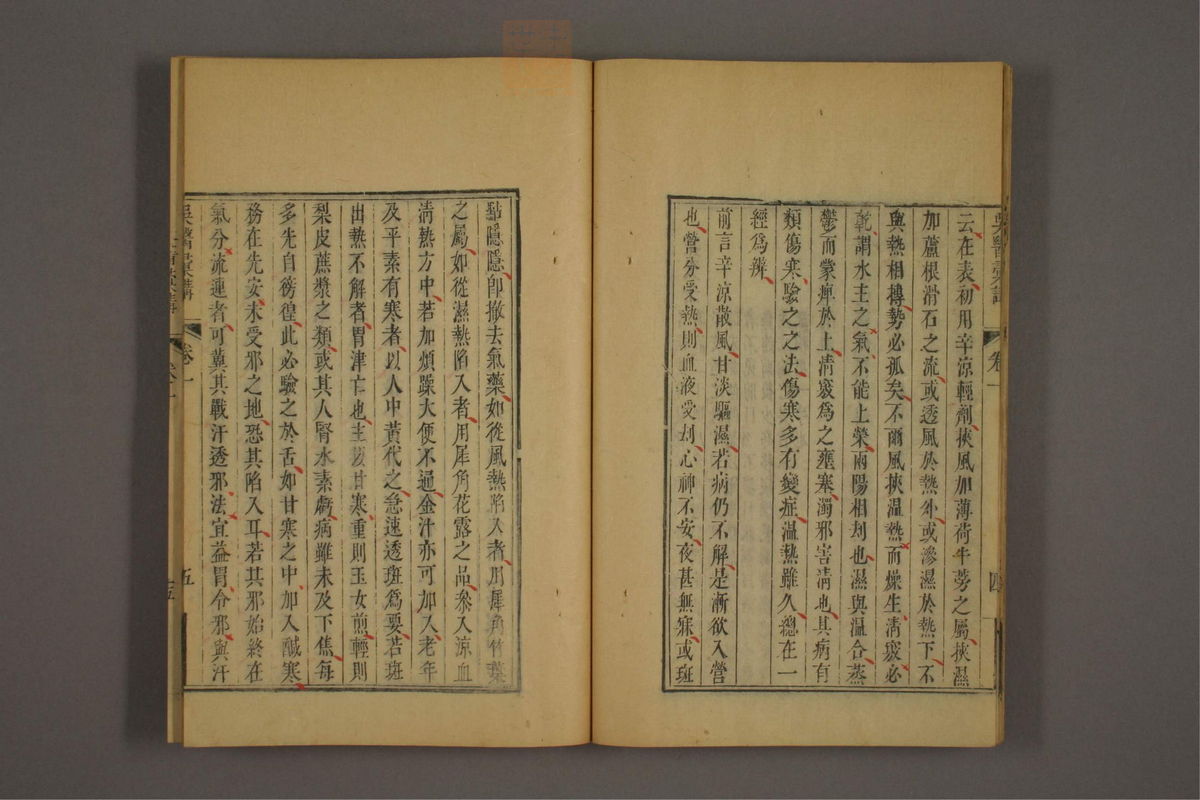 吳醫彙講 卷一 四
云在表初用辛涼輕劑挾風加薄荷牛蒡之屬挾濕
加蘆根滑石之流或透風於熱外或滲濕於熱下不
與熱相摶勢必孤矣不爾風挾溫熱而燥生清竅必
乾謂水主之氣不能上榮兩陽相刦也濕與溫合蒸
鬱而蒙痹於上清竅爲之壅塞濁邪害清也其病有
類傷寒驗之之法傷寒多有變症溫熱雖久總在一
經爲辨
前言辛涼散風甘淡驅濕若病仍不解是漸欲入營
也營分受熱則血液受刦心神不安夜甚無寐或斑
點隱隱即撤去氣藥如從風熱陷入者用犀角竹葉
之屬如從濕熱陷入者用犀角花露之品叅入涼血
清熱方中若加煩躁大便不通金汁亦可加入老年
及平素有寒者以人中黃代之急速透斑爲要若斑
出熱不解者胃津亡也主以甘寒重則玉女煎輕則
梨皮蔗漿之類或其人腎水素虧病雖未及下焦每
多先自徬徨此必驗之於舌如甘寒之中加入鹹寒
務在先安未受邪之地恐其陷入耳若其邪始終在
氣分流連者可冀其戰汗透邪法宜益胃令邪與汗
吳醫彙講 卷一 五